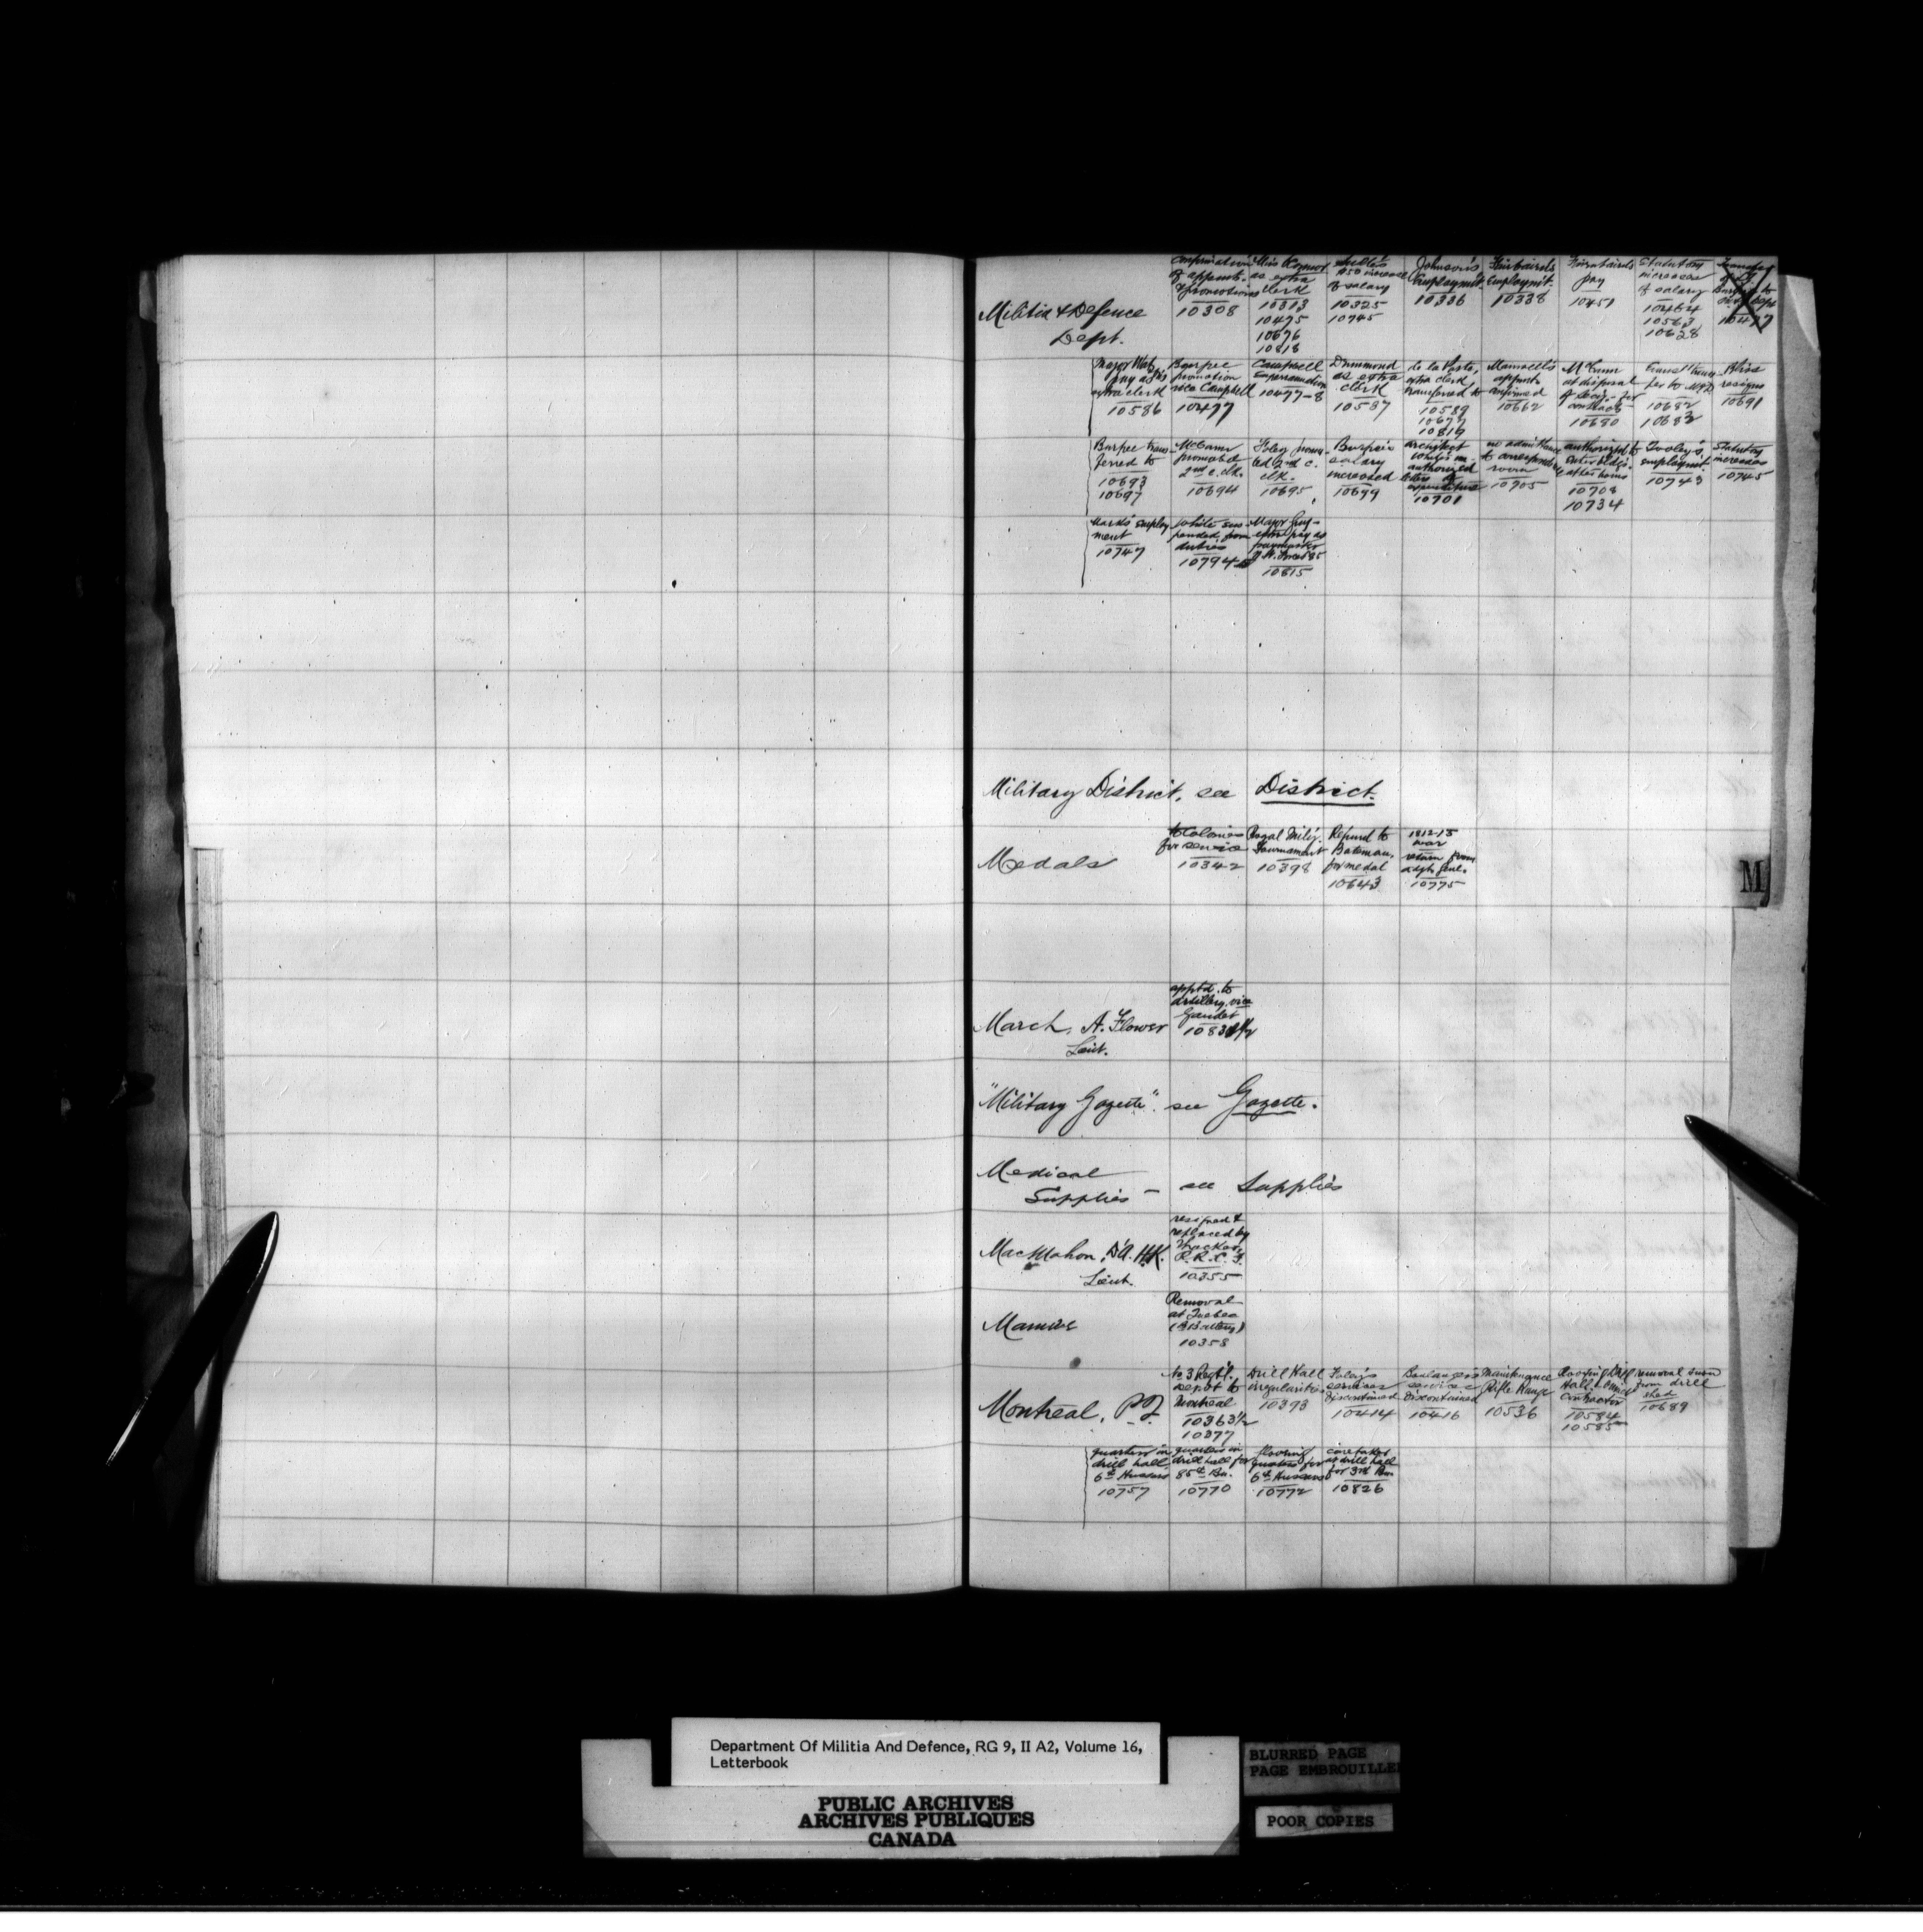 Militia & Defence
Dept.
confirmation
of appmt.
& promotions
10308
Miss
as extra
clerk
10313
10475
10676
10818
$50 increase
of salary
10325
10745
Johnson's
employmt.
10336
Fairbairds
employmt.
10338
Fairbairds
pay
10451
Statutory
increases
of salary
10464
10563
10628
Transfer
of
Burpee to
10477
Major
pay as
extra clerk
10586
Burpee
promotion
vice Campbell
10477
Campbell
Superannuation
10477-8
Drummond
as extra
clerk
10587
de la Porte,
extra clerk,
transferred to
10589
10677
10819
appmt.
confirmed
10662
McCann
at disposal
of for
10680
fer to
10682
10683
Bliss
resigns
10691
Burpee trans-
ferred to
10693
10697
McCann
promoted
2nd c. clk.
10694
Foley promo-
ted 2nd c.
clk.
10695
Burpee's
salary
increased
10699
architect
White's un-
authorized
letters of
expenditure
10701
no admittance
to correspondence
room
10705
authorized to
enter bldgs.
after hours
10708
10734
employmt.
10743
Statutory
increases
10745
Mark's employ
ment
10747
White sus-
pended from
duties
10794
Major Guy-
pay as
paymaster
10815
Military District, see District.
Medals
to Colonies
for service
10342
Royal Mility.
Tournament
10398
Refund to
Bateman,
for medal
10643
1812-15
war
return from
adjt. genl.
10775
March, A. Flower
Lieut.
apptd. to
artillery, vice
Gaudet
"Military Gazette" see Gazette.
Medical
Supplies — see Supplies
MacMahon, D'A. H.K.
Lieut.
resigned &
replaced by
Thacker,
10355
Manure
Removal
at Quebec
(B Battery)
10358
Montreal, P.Q.
No 3 Regt'l.
Depot to
Montreal
10363½
10377
Drill Hall
irregularities
10393
Foley's
services
discontinued
10414
Boulanger's
services
discontinued
10416
Maintenance
Rifle Range
10536
Roofing Drill
Hall
contractor
10584
10585
removal
from drill
shed
10689
quarters in
drill hall,
6th Hussars
10757
quarters in
drill hall for
85th Bn.
10770
flooring
quarters for
6th Hussars
10772
caretaker
drill hall
for 3rd Bn.
10826
M
Department Of Militia And Defence, RG 9, II A2, Volume 16,
Letterbook
PUBLIC ARCHIVES
ARCHIVES PUBLIQUES
CANADA
BLURRED PAGE
PAGE EMBROUILLEE
POOR COPIES